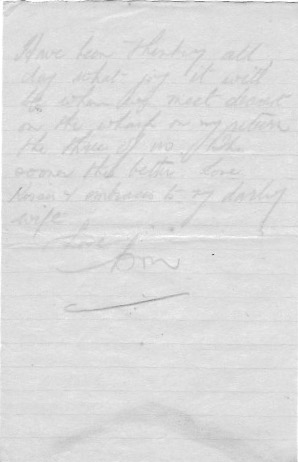 Have been thinking all
day what joy it will
be when we meet dearest
on the wharf on my return
the three of us, the
sooner the better. love
kisses & embraces to my darling
wife
Love